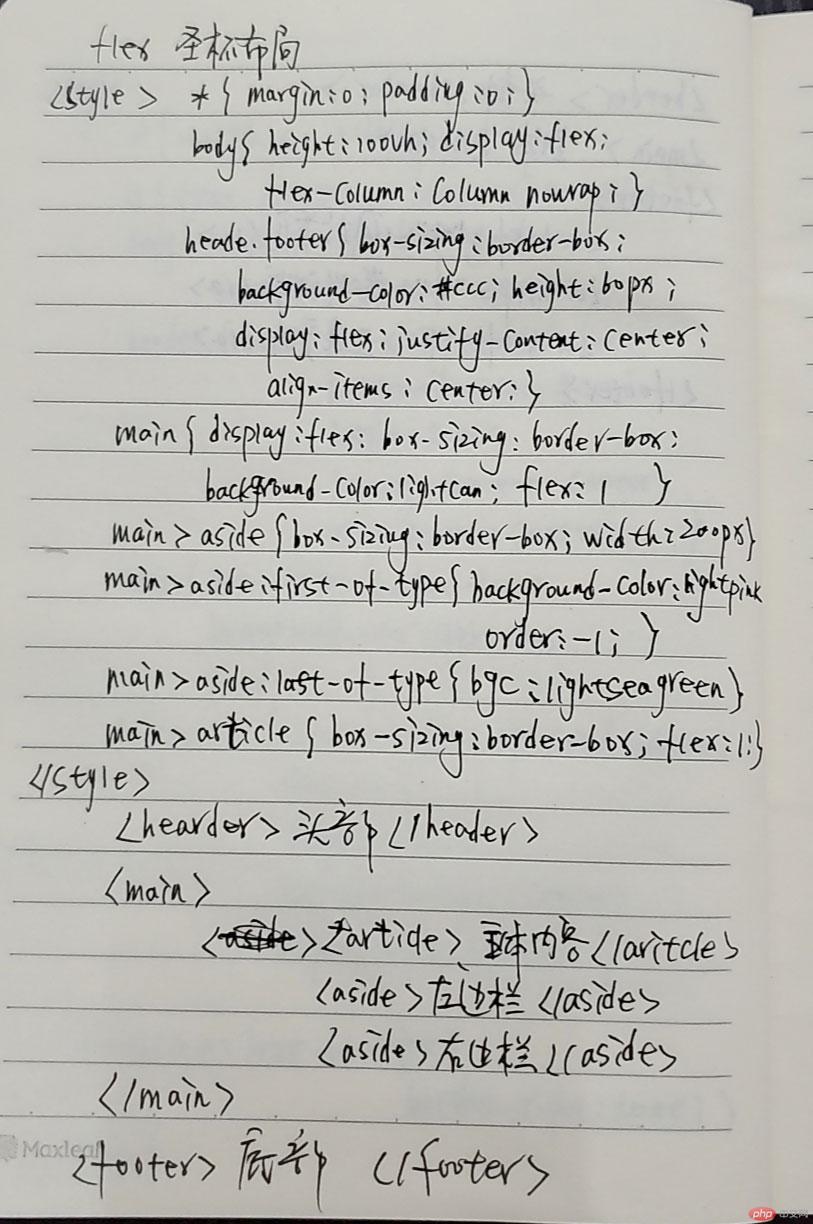 flex 圣杯布局
<style> *{ margin:0; padding:0;}
body{ height:100vh; display:flex;
flex-column: column nowrap; }
heade.footer{ box-sizing:border-box;
background-color:#ccc; height:60px;
display:flex; justify-content:center;
align-items:center;}
main{ display:flex; box-sizing:border-box;
background-color:lightcan; flex:1 }
main>aside{box-sizing:border-box; width:200px}
main>aside:first-of-type{ background-color:lightpink
order:-1; }
main>aside:last-of-type{ bgc:lightseagreen}
main>article { box-sizing:border-box; flex:1;}
</style>
<hearder> 头部 </header>
<main>
<article> 主体内容 </aritcle>
<aside>左边栏 </aside>
<aside>右边栏 </aside>
</main>
Maxleaf
<footer> 底部 </footer>
php 中文网